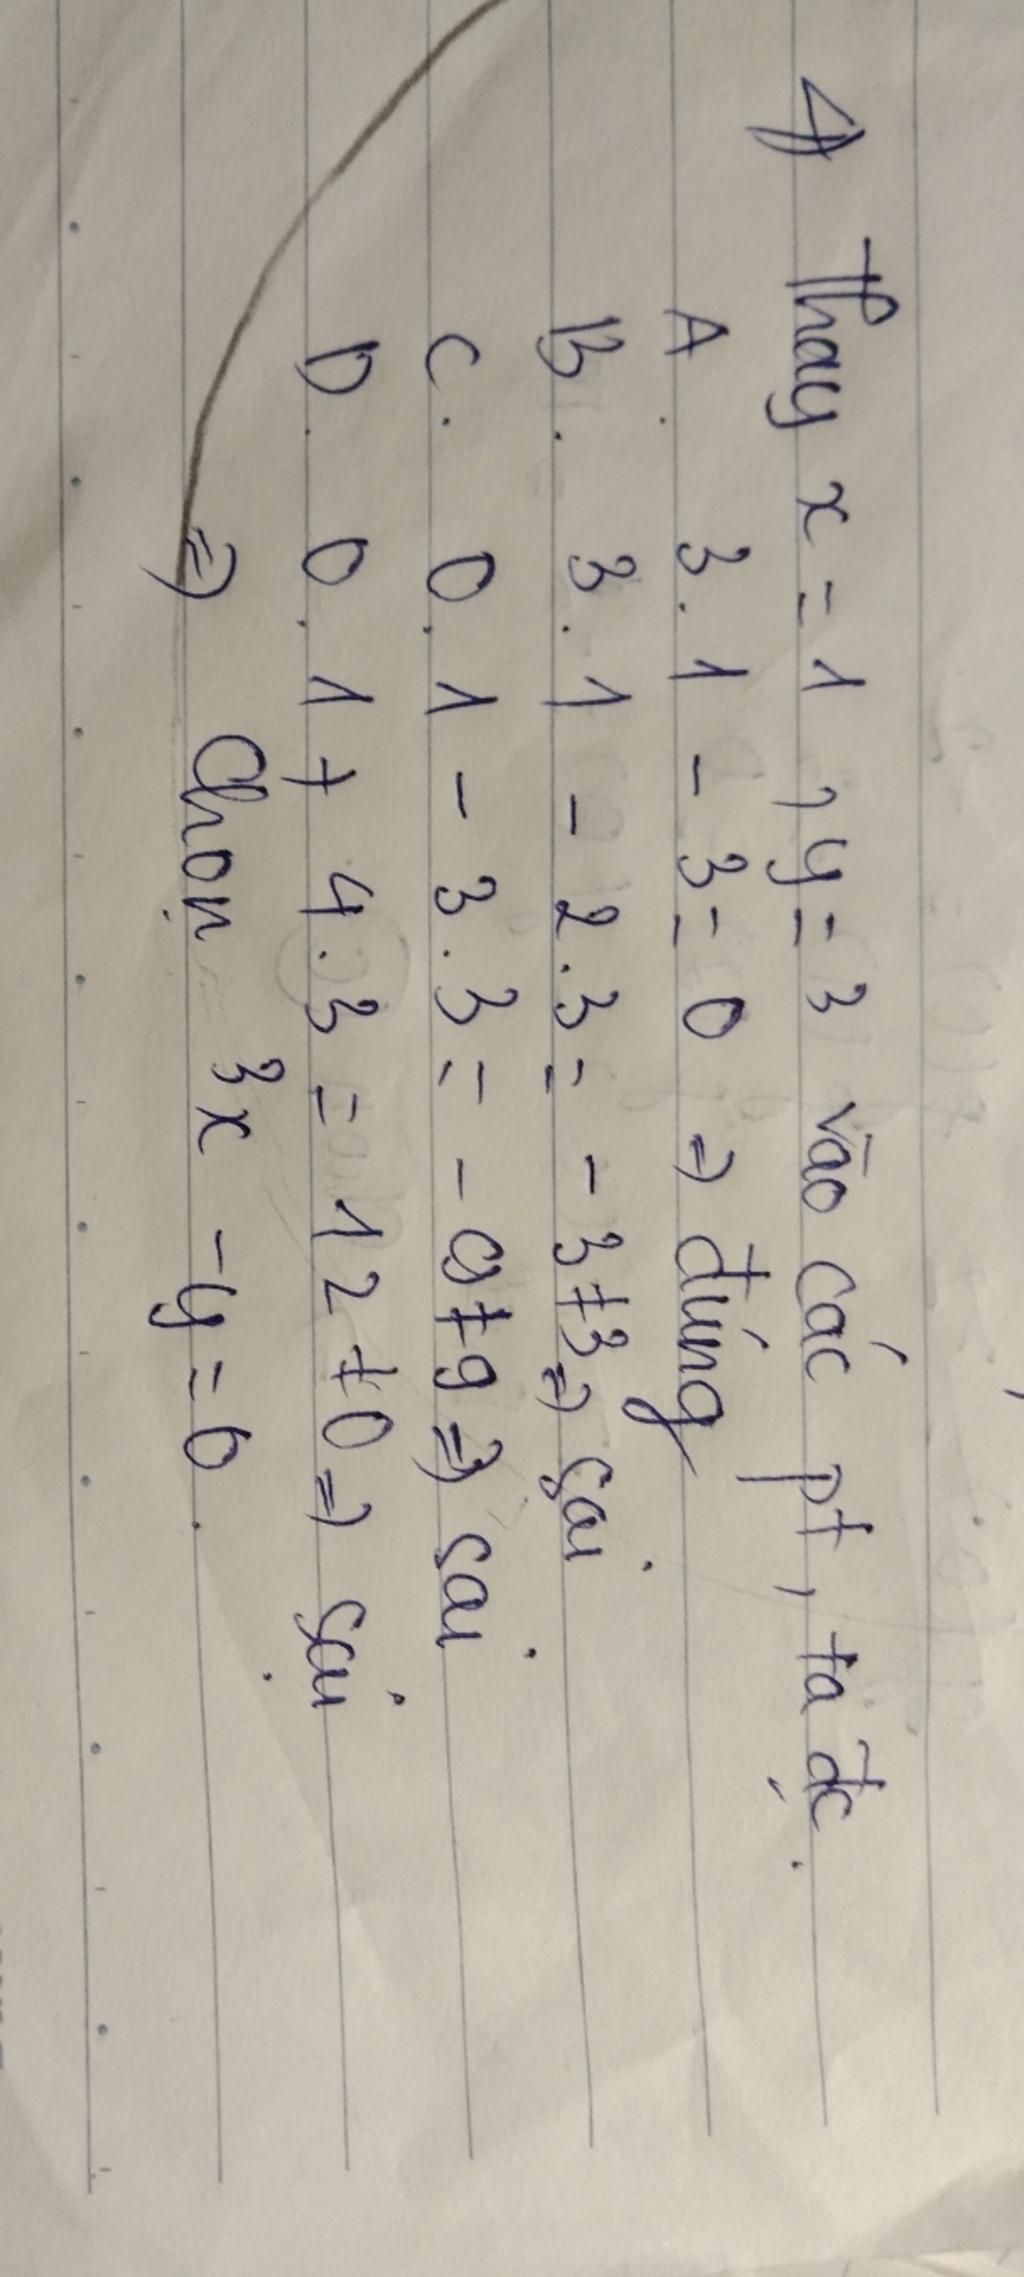 4) Thay x = 1, y = 3 vào các pt, ta đc.
A. 3.1 - 3 = 0 => đúng
B. 3.1 - 2.3 = -3 ≠ 3 => sai
C. 0.1 - 3.3 = -9 ≠ 9 => sai
D. 0.1 + 4.3 = 12 ≠ 0 => sai
=> Chọn 3x - y = 0.